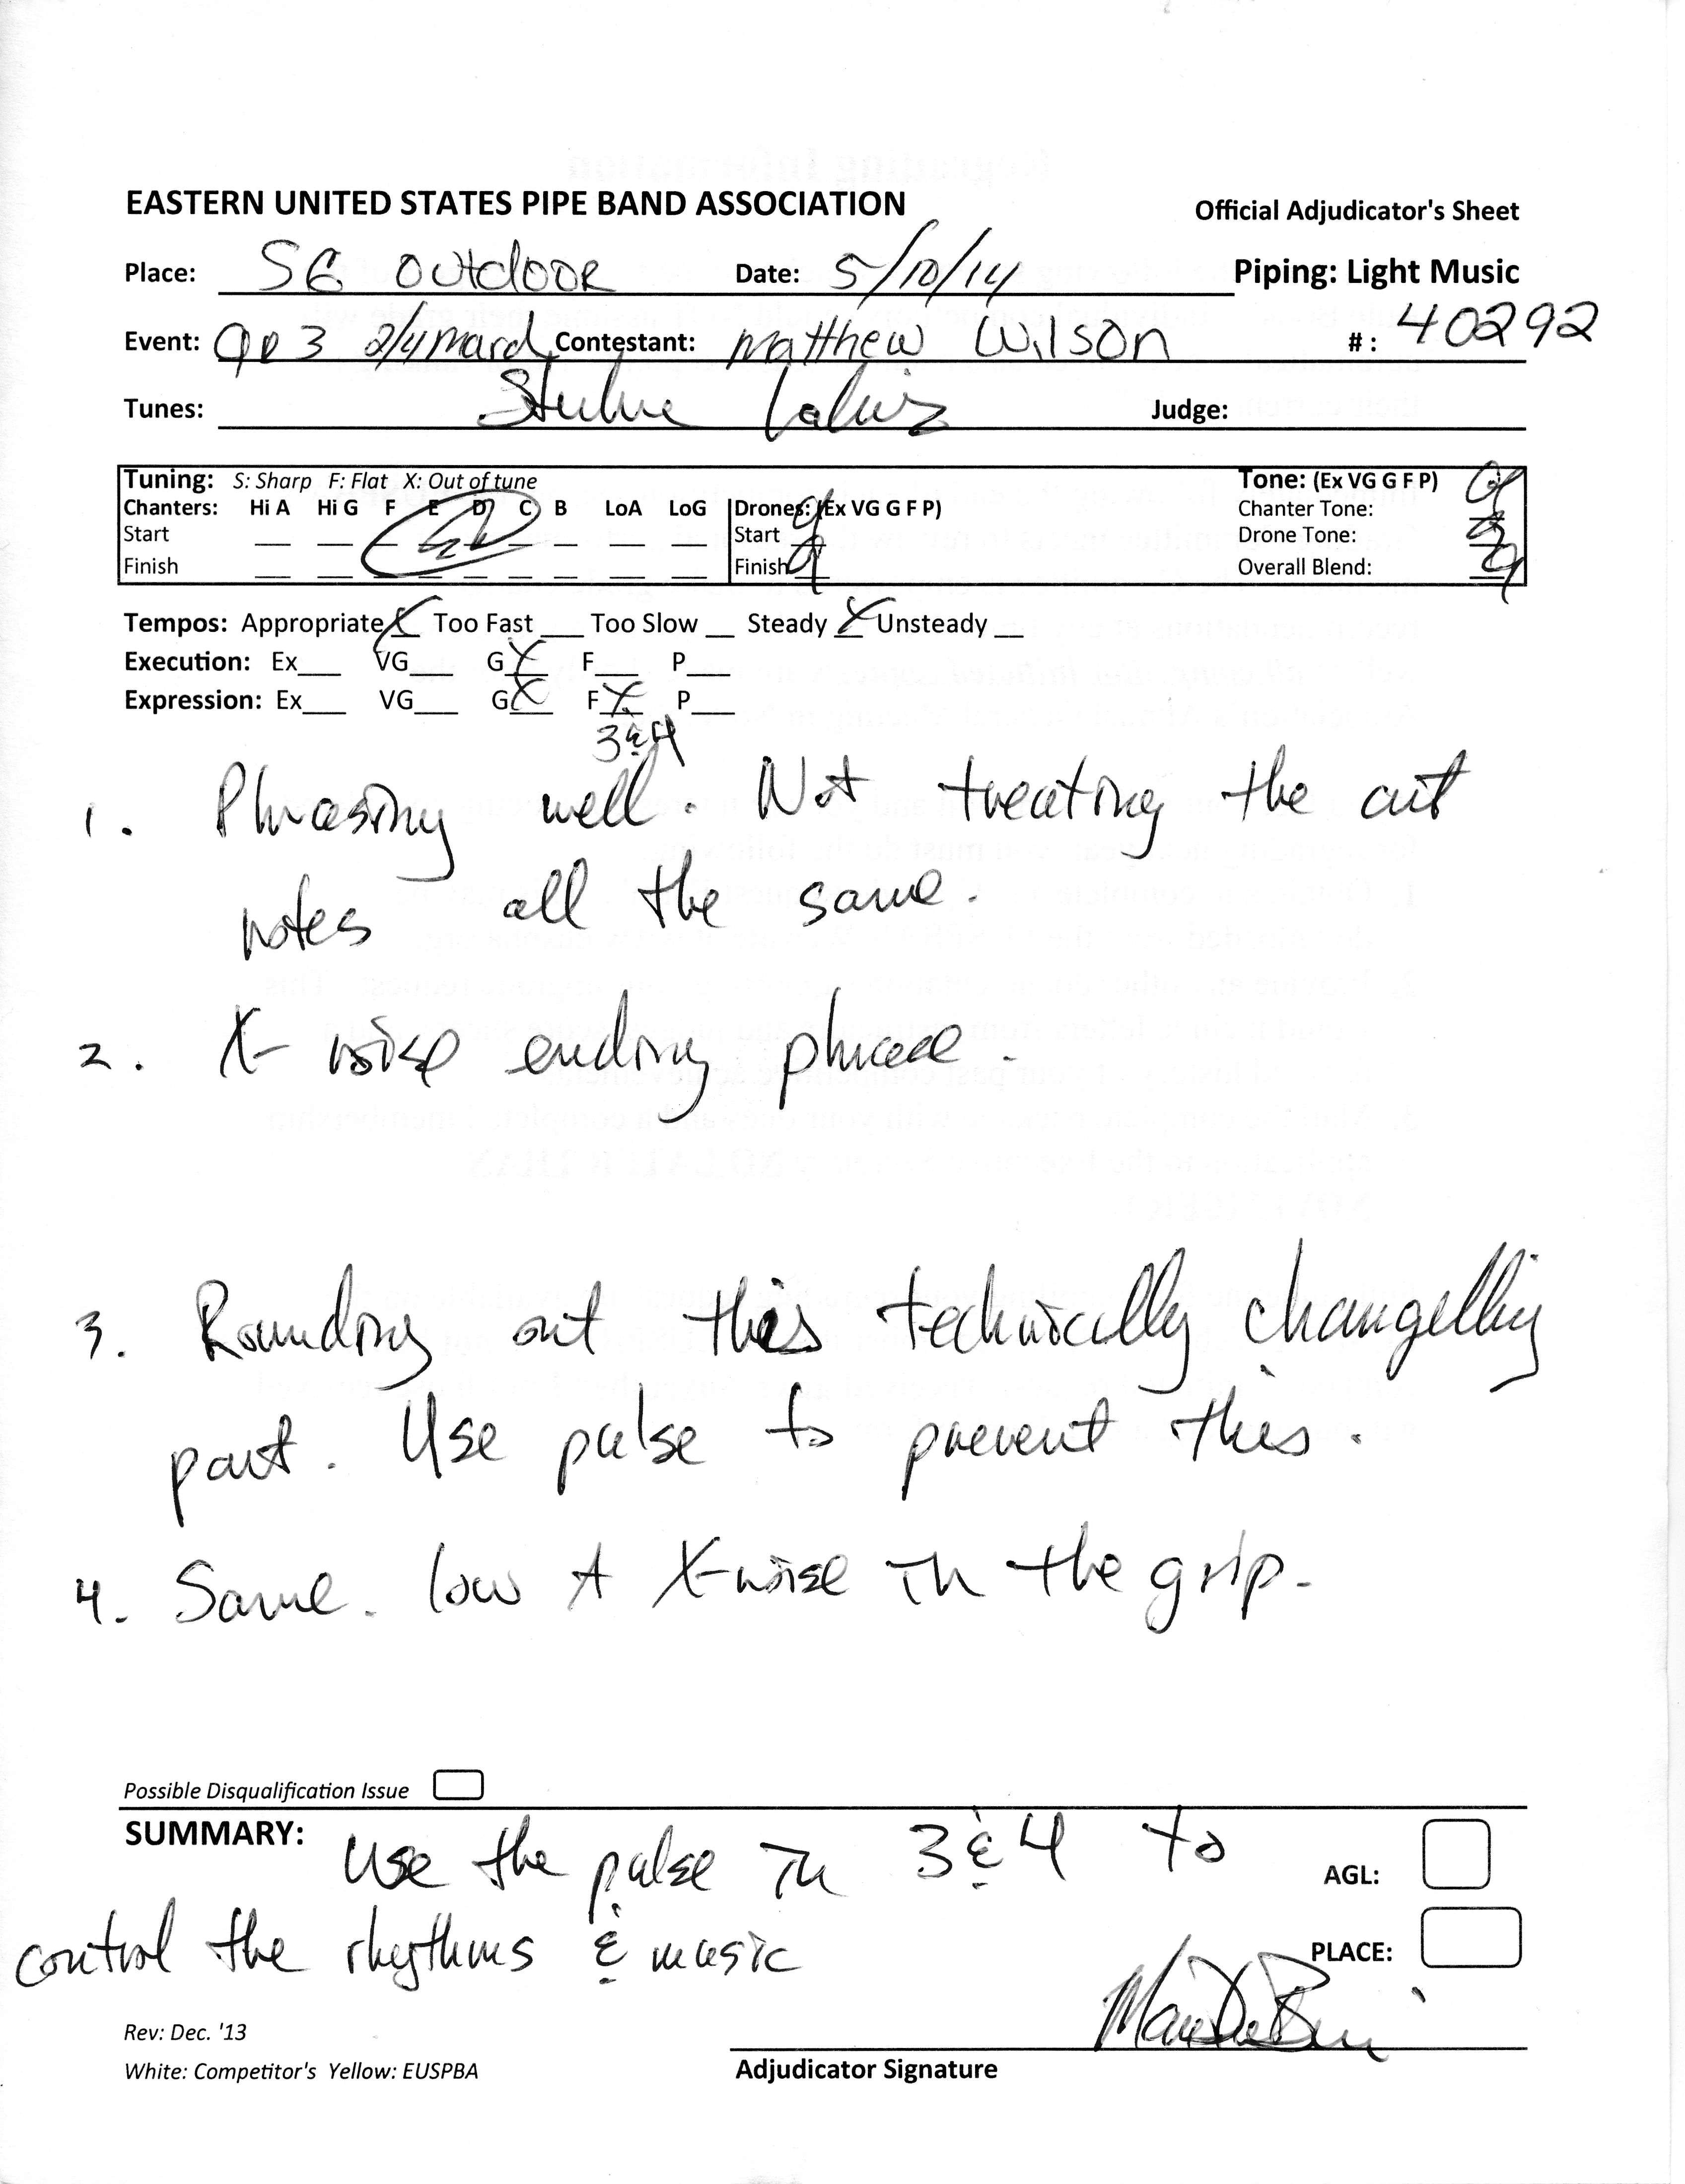 EASTERN UNITED STATES PIPE BAND ASSOCIATION
Official Adjudicator's Sheet
Place: SE Outdoor Date: 5/10/14 Piping: Light Music
Event: Gr 3 2/4 March Contestant: Matthew Wilson #: 40292
Tunes: Judge:
Tuning: S: Sharp F: Flat X: Out of tune Tone: (Ex VG G F P) G
Chanters: Hi A Hi G F E D C B LoA LoG Drones: (Ex VG G F P) Chanter Tone:
Start __ __ __ __ __ __ __ __ __ Start G Drone Tone: G
Finish __ __ __ __ __ __ __ __ __ Finish G Overall Blend: G
Tempos: Appropriate X Too Fast ___ Too Slow __ Steady X Unsteady __
Execution: Ex___ VG___ G X F___ P___
Expression: Ex___ VG___ G X F X P___
3 & 4
1. Phrasing well. Not treating the cut
notes all the same.
2. X-noise ending phrase.
3. Rounding out this technically changelling
part. Use pulse to prevent this.
4. Same. low A X-noise in the grip.
Possible Disqualification Issue
SUMMARY: Use the pulse in 3 & 4 to
AGL:
control the rhythms & music
PLACE:
Rev: Dec. '13
White: Competitor's Yellow: EUSPBA
Adjudicator Signature